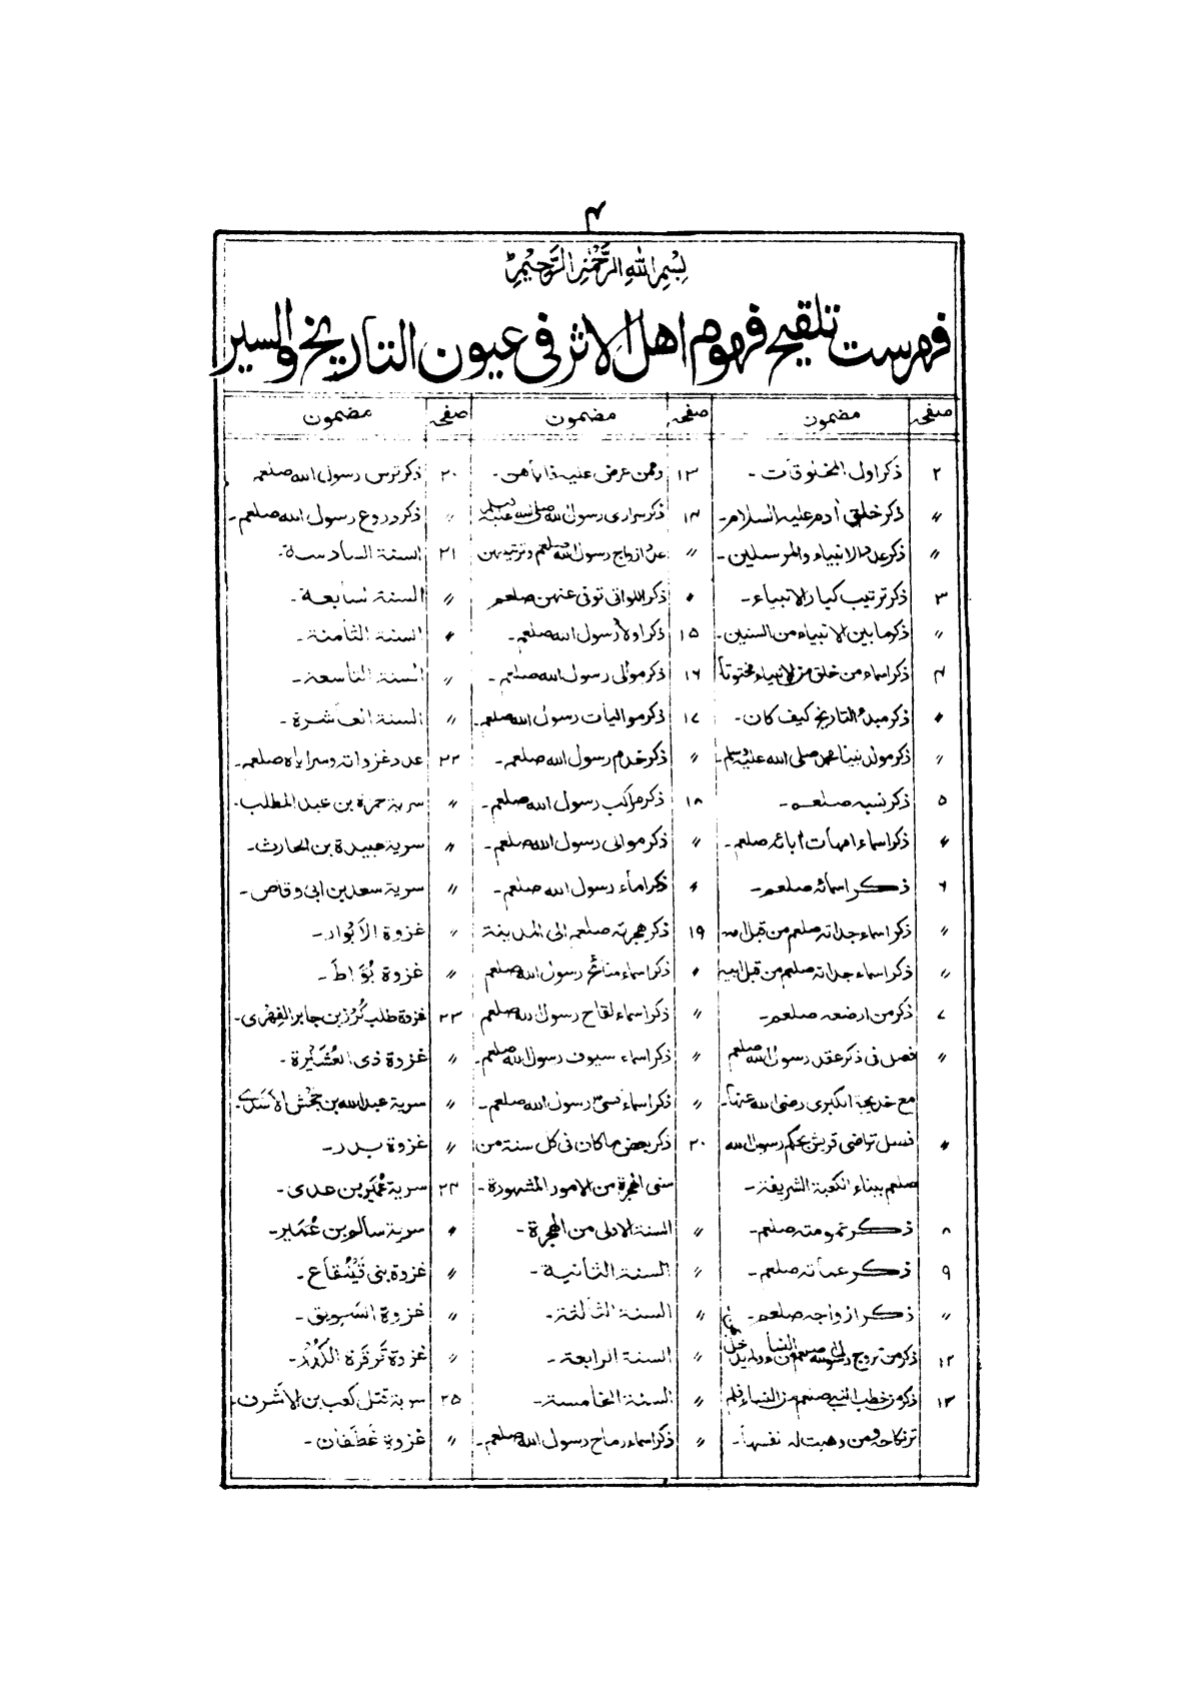 ۴
بسم الله الرحمن الرحيم
فهرست تلقيح فهوم اهل الاثر فى عيون التاريخ والسير
صفحہ مضمون
۲ ذكر اول المخلوقات -
〃 ذكر خلق آدم عليه السلام -
〃 ذكر عدد الانبياء والمرسلين -
۳ ذكر ترتيب كبار الانبياء -
〃 ذكر ما بين الانبياء من السنين -
۴ ذكر اسماء من خلق من الانبياء مختونا
〃 ذكر مبدء التاريخ كيف كان -
〃 ذكر مولد نبينا محمد صلى الله عليه وسلم -
۵ ذكر نسبه صلعم -
〃 ذكر اسماء امهات آبائه صلعم -
۶ ذكر اسمائه صلعم -
〃 ذكر اسماء جداته صلعم من قبل امه
〃 ذكر اسماء جداته صلعم من قبل ابيه
۷ ذكر من ارضعه صلعم -
〃 فصل فى ذكر عقد رسول الله صلعم
مع خديجة الكبرى رضى الله عنها -
〃 فصل تراضى قريش بحكم رسول الله
صلعم ببناء الكعبة الشريفة -
۸ ذكر عمومته صلعم -
۹ ذكر عماته صلعم -
〃 ذكر ازواجه صلعم -
۱۲ ذكر من تزوج صلعم من النساء ولم يدخل
۱۳ ذكر من خطب النبى صلعم من النساء فلم
تم نكاحه ومن وهبت له نفسها -
صفحہ مضمون
۱۳ وممن عرض عليه فاباهن -
۱۴ ذكر سرارى رسول الله صلى الله عليه وسلم
〃 عدد ازواج رسول الله صلعم وترتيبهن
〃 ذكر اللواتى توفى عنهن صلعم
۱۵ ذكر اولاد رسول الله صلعم -
۱۶ ذكر موالى رسول الله صلعم -
۱۷ ذكر مواليات رسول الله صلعم -
〃 ذكر خدم رسول الله صلعم -
۱۸ ذكر مراكب رسول الله صلعم -
〃 ذكر موالى رسول الله صلعم -
〃 ذكر اماء رسول الله صلعم -
۱۹ ذكر هجرته صلعم الى المدينة
〃 ذكر اسماء منائح رسول الله صلعم
〃 ذكر اسماء لقاح رسول الله صلعم
〃 ذكر اسماء سيوف رسول الله صلعم -
〃 ذكر اسماء قسى رسول الله صلعم -
۲۰ ذكر بعض ما كان فى كل سنة من
سنى الهجرة من الامور المشهورة -
〃 السنة الاولى من الهجرة -
〃 السنة الثانية -
〃 السنة الثالثة -
〃 السنة الرابعة -
〃 السنة الخامسة -
〃 ذكر اسماء رماح رسول الله صلعم -
صفحہ مضمون
۲۰ ذكر ترس رسول الله صلعم
〃 ذكر دروع رسول الله صلعم -
۲۱ السنة السادسة -
〃 السنة سابعة -
〃 السنة الثامنة -
〃 السنة التاسعة -
〃 السنة العاشرة -
۲۲ عدد غزواته وسراياه صلعم -
〃 سرية حمزة بن عبد المطلب -
〃 سرية عبيدة بن الحارث -
〃 سرية سعد بن ابى وقاص -
〃 غزوة الاَبْواء -
〃 غزوة بُوَاطَ -
۲۳ غزوة طلب كُرْز بن جابر الفِهْرى -
〃 غزوة ذى العُشَيْرة -
〃 سرية عبد الله بن جَحْش الاَسَدى -
〃 غزوة بدر -
۲۴ سرية عُمَيْر بن عدى -
〃 سرية سالم بن عُمَير -
〃 غزوة بنى قَيْنُقاع -
〃 غزوة السَويق -
〃 غزوة قَرقَرة الكُدْر -
۲۵ سرية قتل كعب بن الاَشرف -
〃 غزوة غَطَفان -